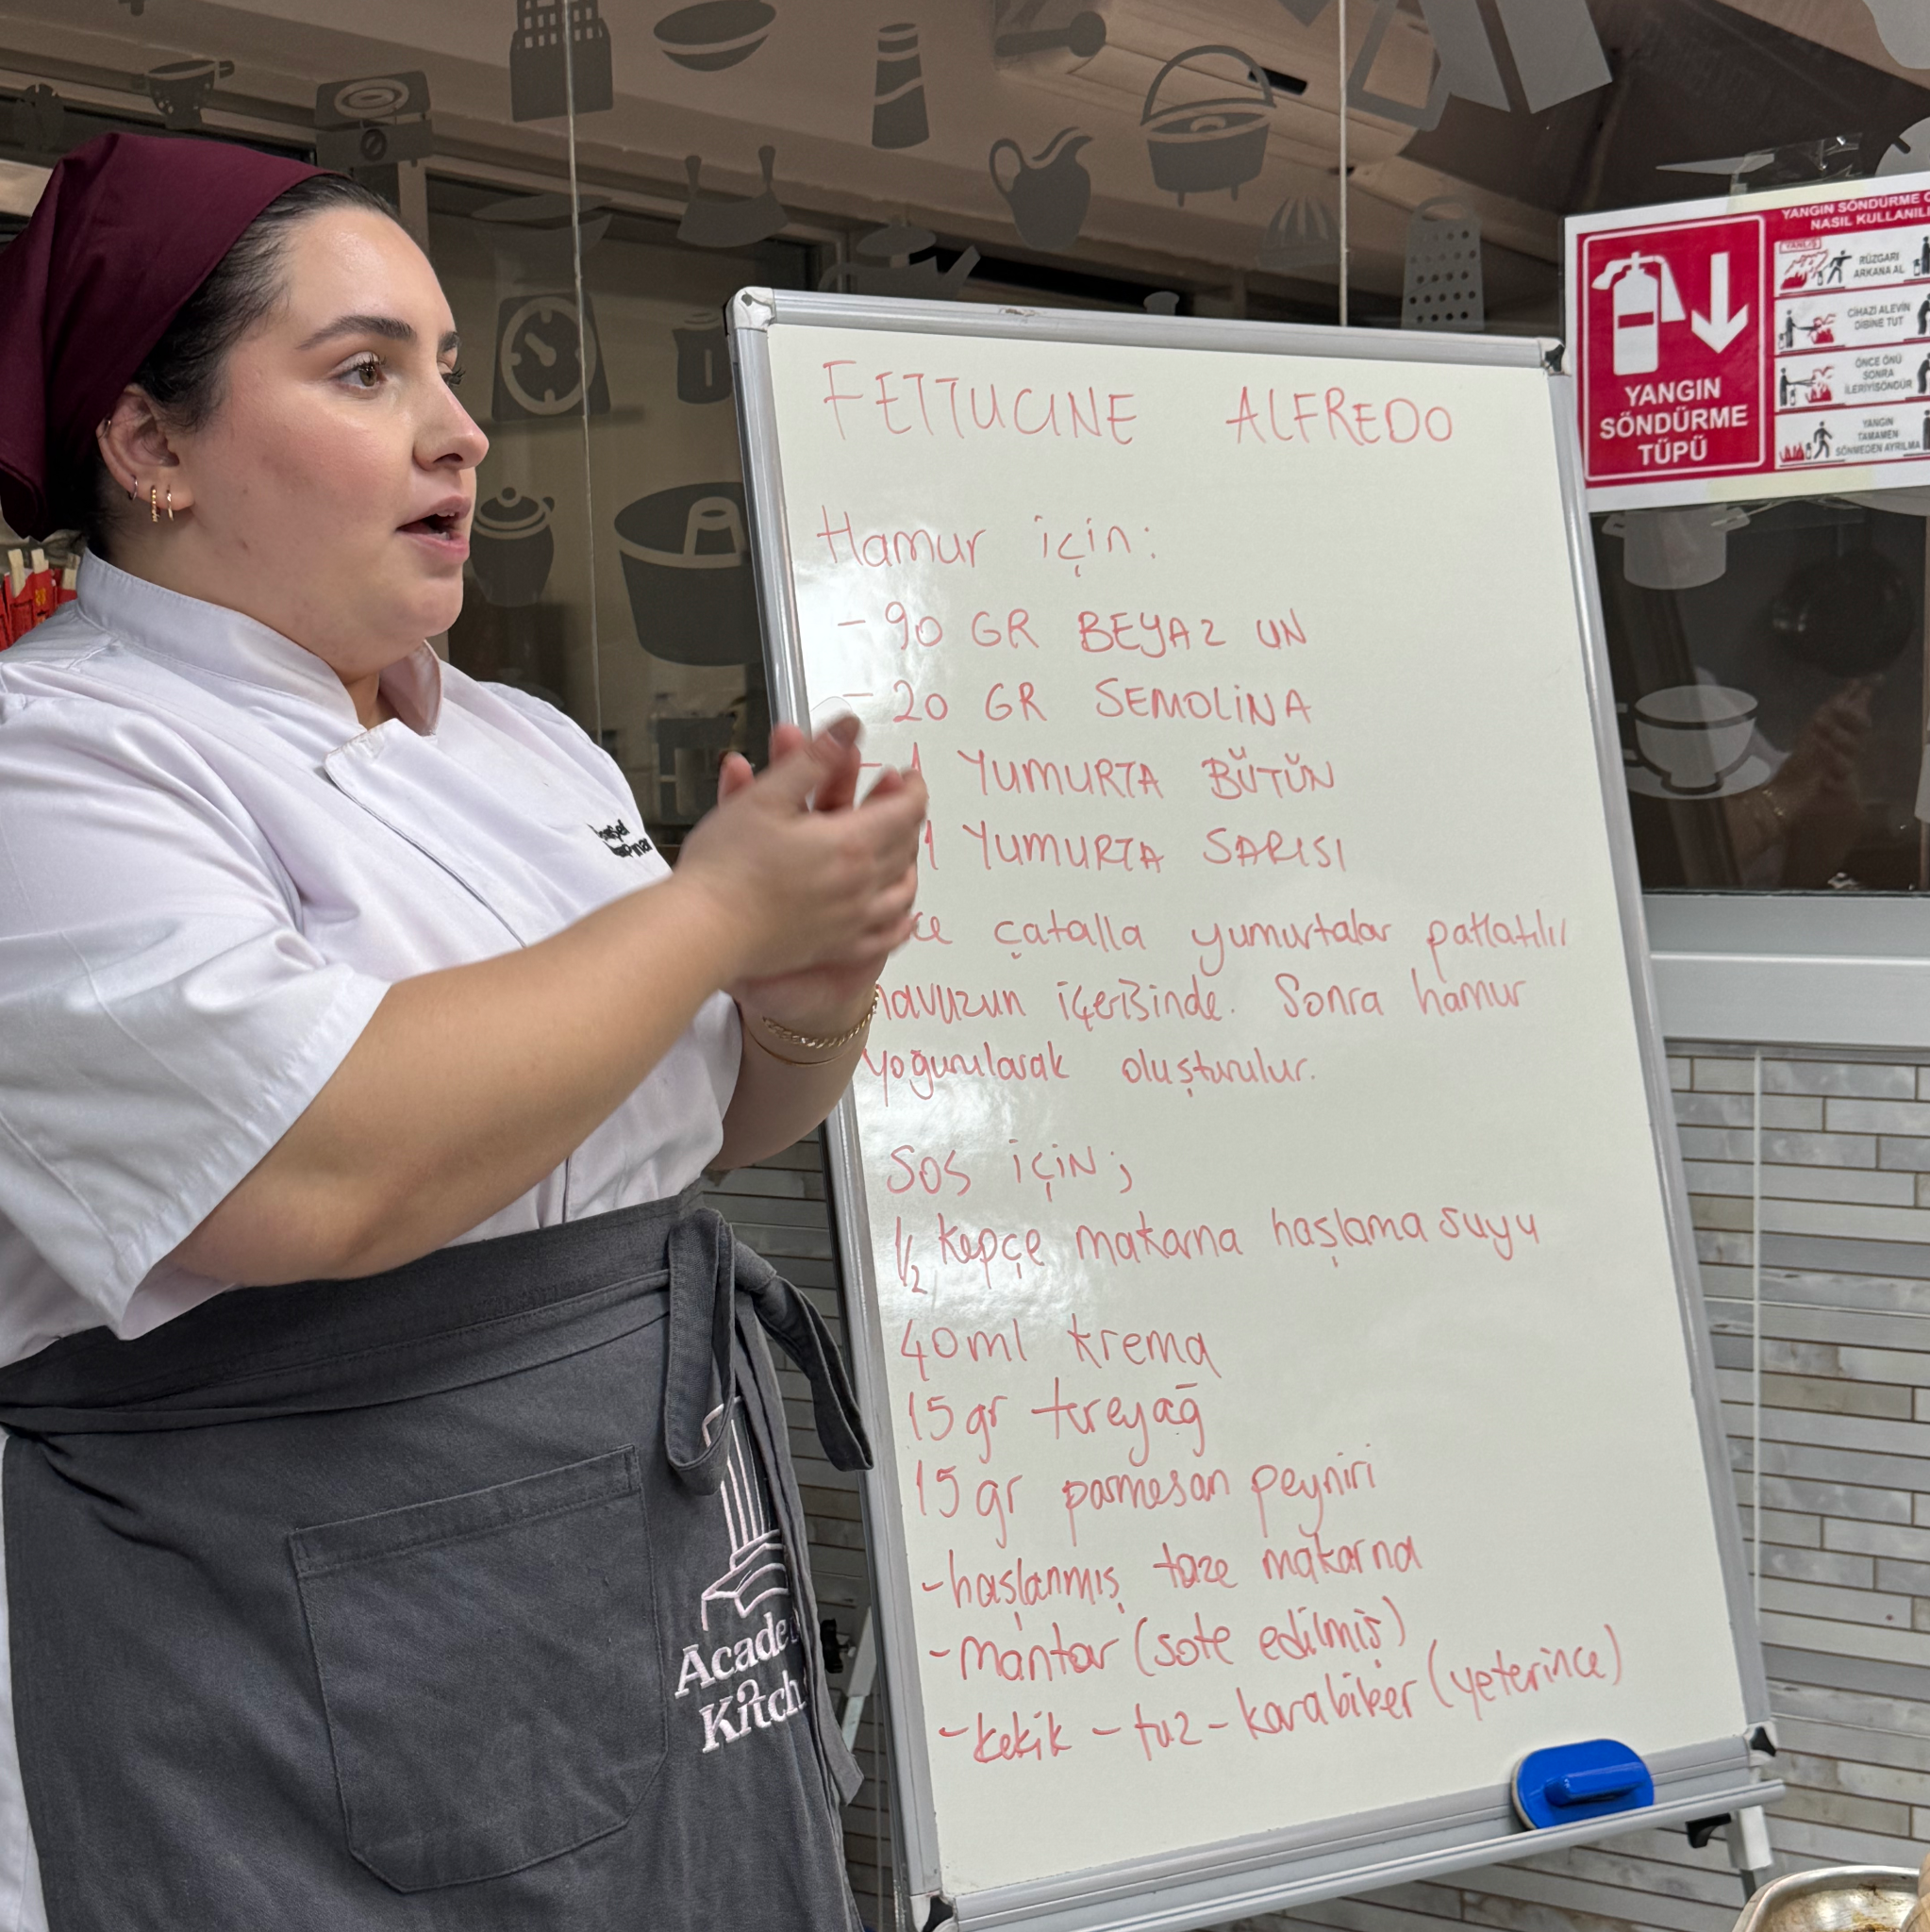 FETTUCINE ALFREDO
Hamur için:
- 90 GR BEYAZ UN
- 20 GR SEMOLİNA
- 1 YUMURTA BÜTÜN
1 YUMURTA SARISI
çatalla yumurtalar patlatılır
havuzun içerisinde. Sonra hamur
yoğurularak oluşturulur.
SOS İÇİN;
1/2 kepçe makarna haşlama suyu
40ml krema
15gr tereyağ
15gr parmesan peyniri
-haşlanmış taze makarna
-mantar (sote edilmiş)
-kekik - tuz - karabiber (yeterince)
YANGIN SÖNDÜRME
NASIL KULLANILI
YANLIŞ
RÜZGARI
ARKANA AL
CİHAZI ALEVİN
DİBİNE TUT
ÖNCE ÖNÜ
SONRA
İLERİYİ SÖNDÜR
YANGIN
TAMAMEN
SÖNMEDEN AYRILMA
YANGIN
SÖNDÜRME
TÜPÜ
Acade
Kitch